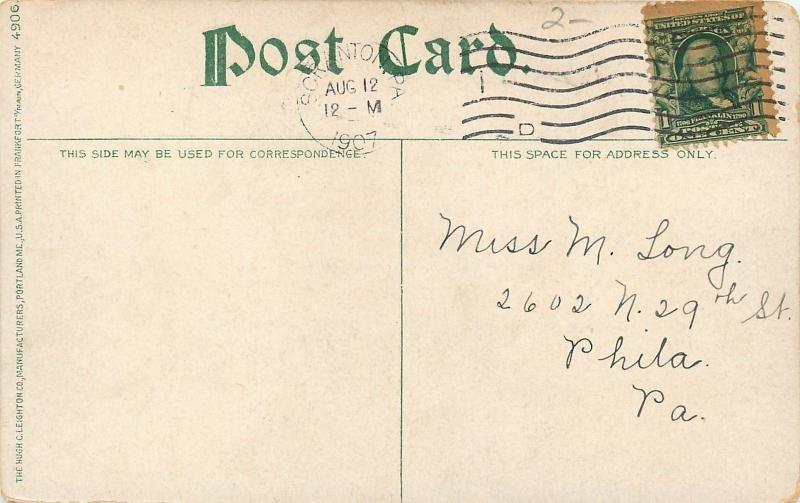 2-
Post Card.
SCRANTON, PA
AUG 12
12 - M
1907
1
D
UNITED STATES OF
AMERICA
1706 FRANKLIN 1790
1 POSTAGE 1
ONE CENT
THIS SIDE MAY BE USED FOR CORRESPONDENCE.
THIS SPACE FOR ADDRESS ONLY.
Miss M. Long.
2602 N. 29th St.
Phila.
Pa.
THE HUGH C. LEIGHTON CO., MANUFACTURERS, PORTLAND ME., U.S.A. PRINTED IN FRANKFORT O/MAIN, GERMANY 4906.